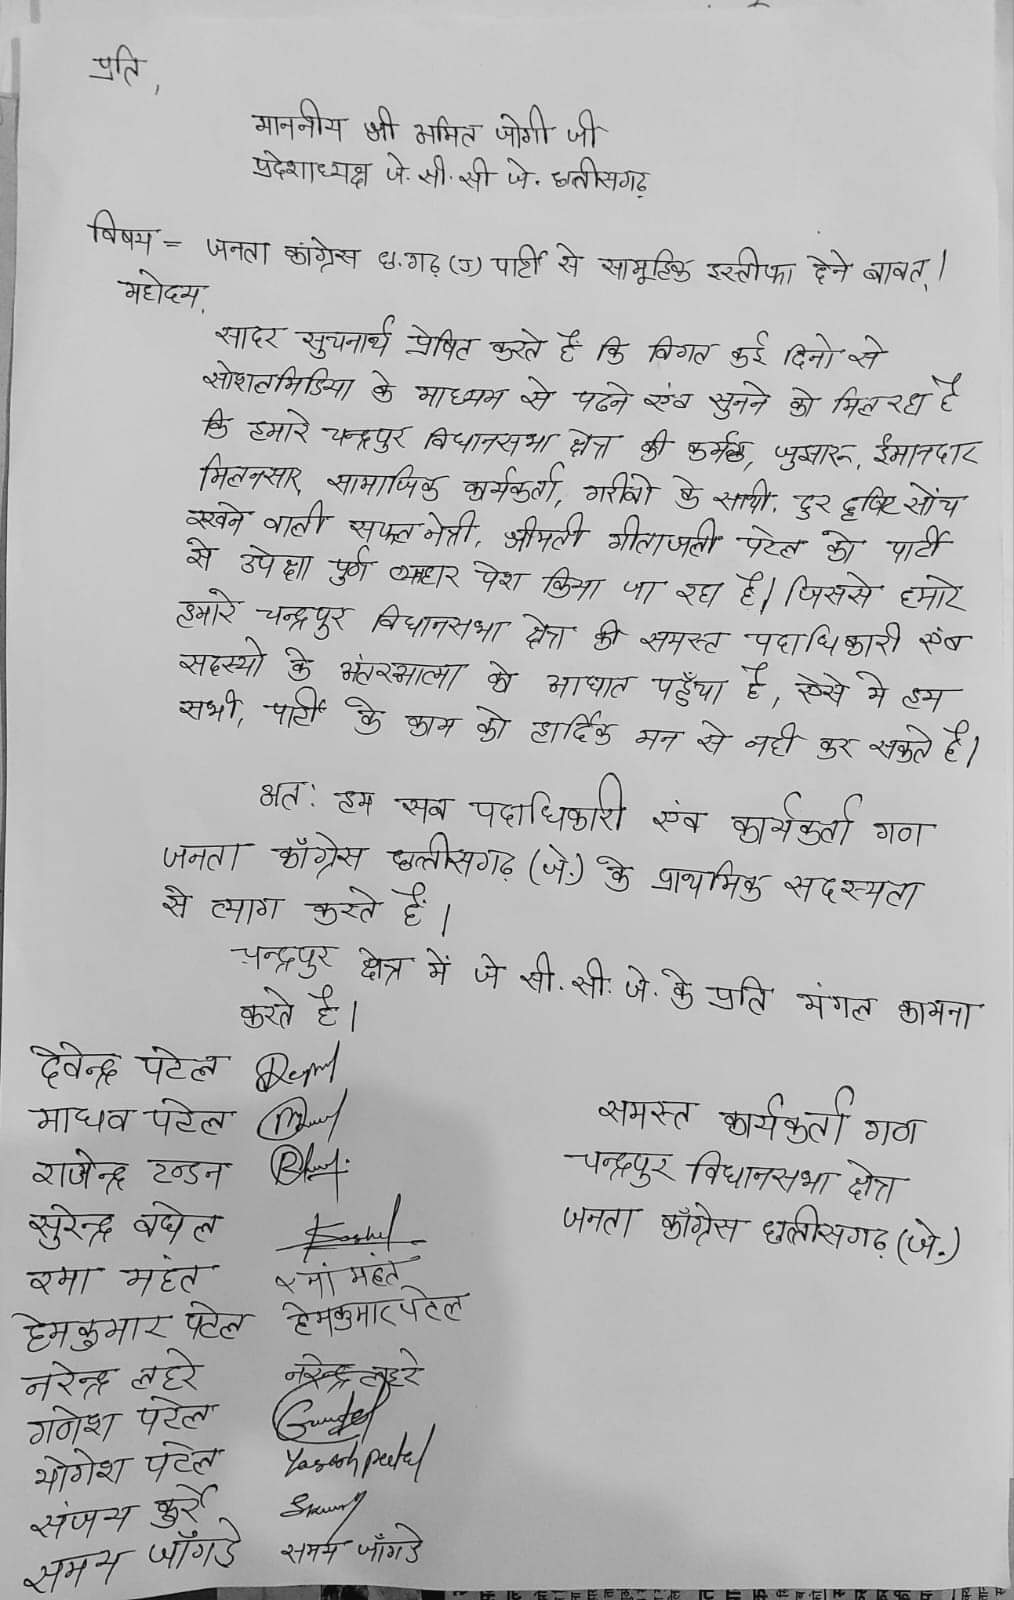 प्रति,
माननीय श्री अमित जोगी जी
प्रदेशाध्यक्ष जे. सी. सी जे. छत्तीसगढ़
विषय = जनता कांग्रेस छ. गढ़ (ज) पार्टी से सामूहिक इस्तीफा देने बाबत्।
महोदय,
सादर सुचनार्थ प्रेषित करते हैं कि विगत कई दिनो से
सोशलमिडिया के माध्यम से पढने एंव सुनने को मिल रहा है
कि हमारे चन्द्रपुर विधानसभा क्षेत्र की कर्मठ, जुझारू, ईमानदार
मिलनसार, सामाजिक कार्यकर्ता, गरीबो के साथी, दुर दृष्टि सोंच
रखने वाली सफल नेत्री, श्रीमती गीतांजली पटेल को पार्टी
से उपेक्षा पुर्ण व्यवहार पेश किया जा रहा है। जिससे हमारे
हमारे चन्द्रपुर विधानसभा क्षेत्र की समस्त पदाधिकारी एंव
सदस्यो के अंतरआत्मा को आघात पहुँचा है, ऐसे मे हम
सभी, पार्टी के काम को हार्दिक मन से नही कर सकते है।
अतः हम सब पदाधिकारी एंव कार्यकर्ता गण
जनता काँग्रेस छत्तीसगढ़ (जे.) के प्राथमिक सदस्यता
से त्याग करते हैं।
चन्द्रपुर क्षेत्र में जे सी. सी. जे. के प्रति मंगल कामना
करते है।
देवेन्द्र पटेल
माधव पटेल
राजेन्द्र टन्डन
सुरेन्द्र बघेल
रमा महंत रमा महंत
हेमकुमार पटेल हेमकुमार पटेल
नरेन्द्र लहरे नरेन्द्र लहरे
गणेश पटेल
योगेश पटेल
संजय कुर्रे
समय जाँगडे समय जाँगडे
समस्त कार्यकर्ता गण
चन्द्रपुर विधानसभा क्षेत्र
जनता काँग्रेस छत्तीसगढ़ (जे.)